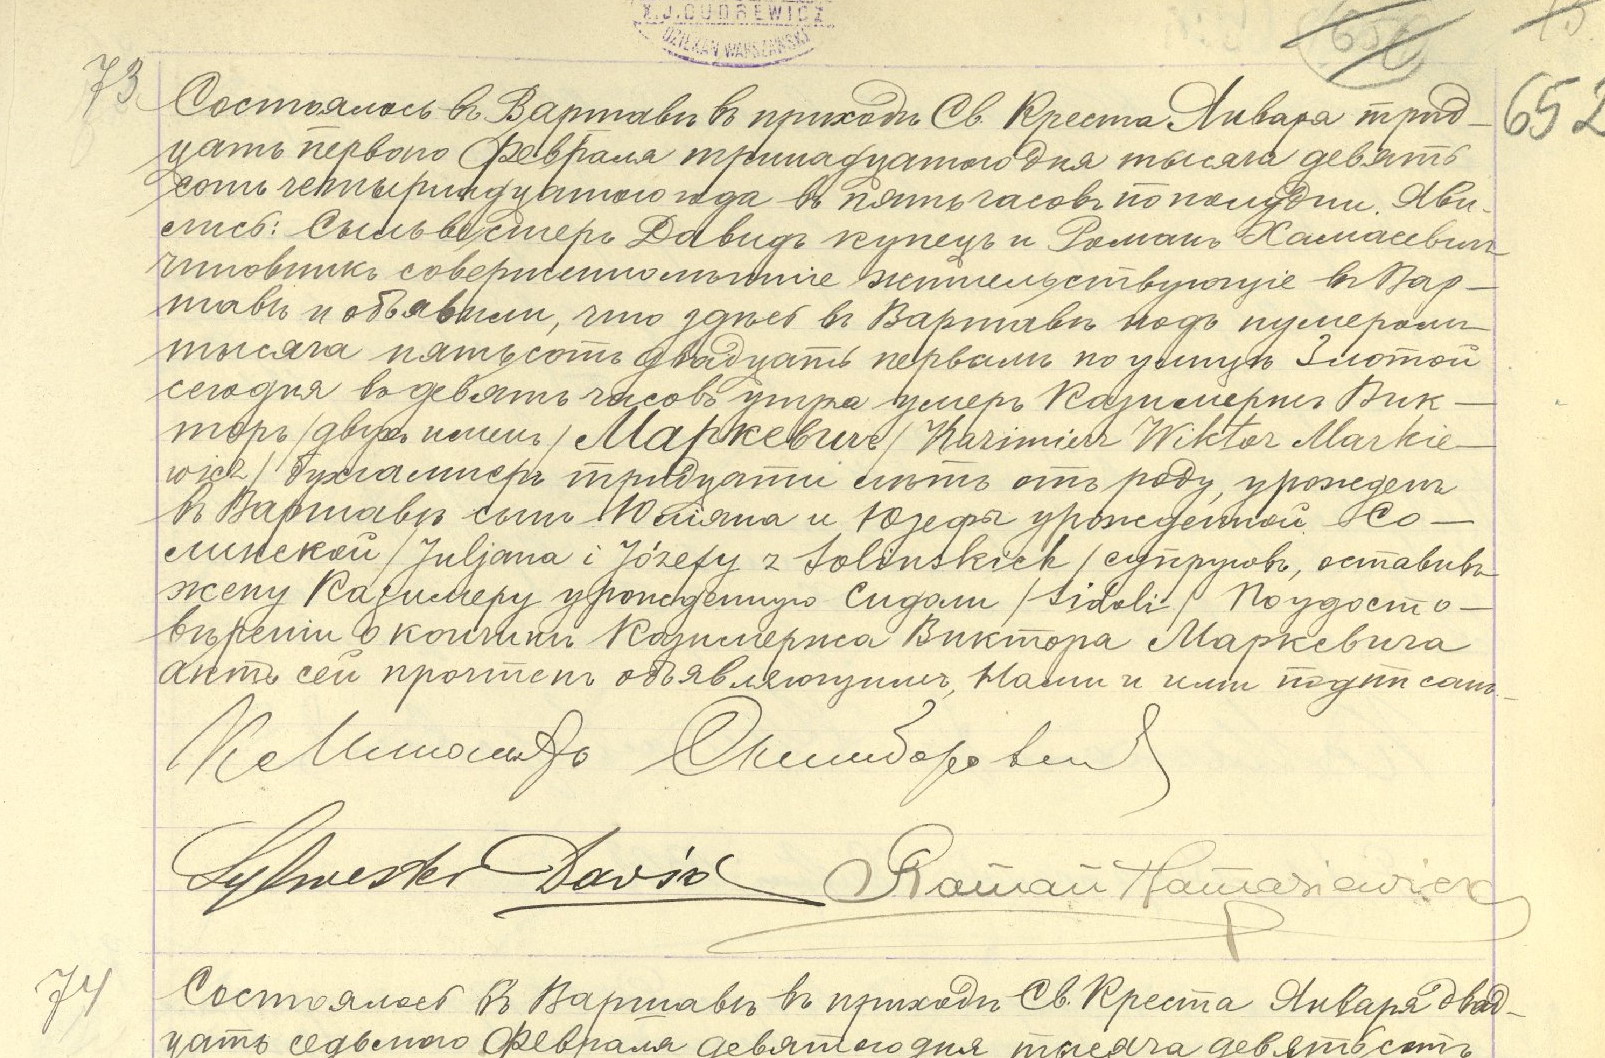 X.J.GUDREWICZ
DZIEKAN WARSZAWSKI
73
652
Состоялось въ Варшавѣ въ приходѣ Св. Креста Января трид-
цать перваго Февраля тринадцатого дня тысяча девять
сотъ четырнадцатого года въ пять часовъ по полудни. Яви-
лись: Сыльвестеръ Давидъ купецъ и Романъ Хамасевичъ
чиновникъ совершеннолѣтніе жительствующіе въ Вар-
шавѣ и объявили, что здѣсь въ Варшавѣ подъ нумеромъ
тысяча пятьсотъ двадцать первымъ по улицѣ Злотой
сегодня въ девять часовъ утра умеръ Казимержъ Вик-
торъ /двухъ именъ/ Маркевичъ /Kazimierz Wiktor Markie-
wicz/ бухгалтеръ тридцати лѣтъ отъ роду, урожденъ
въ Варшавѣ сынъ Юліяна и Юзефы урожденной Со-
линской /Juljana i Józefy z Solinskich/ супруговъ, оставивъ
жену Казимеру урожденную Сидоли /Sidoli/ По удосто-
вѣреніи о кончинѣ Казимержа Виктора Маркевича
актъ сей прочтенъ объявляющимъ, Нами и ими подписанъ.
Sylwester Dawid Roman Hamasiewicz
74
Состоялось въ Варшавѣ въ приходѣ Св. Креста Января двад-
цать седьмого Февраля девятого дня тысяча девятьсотъ